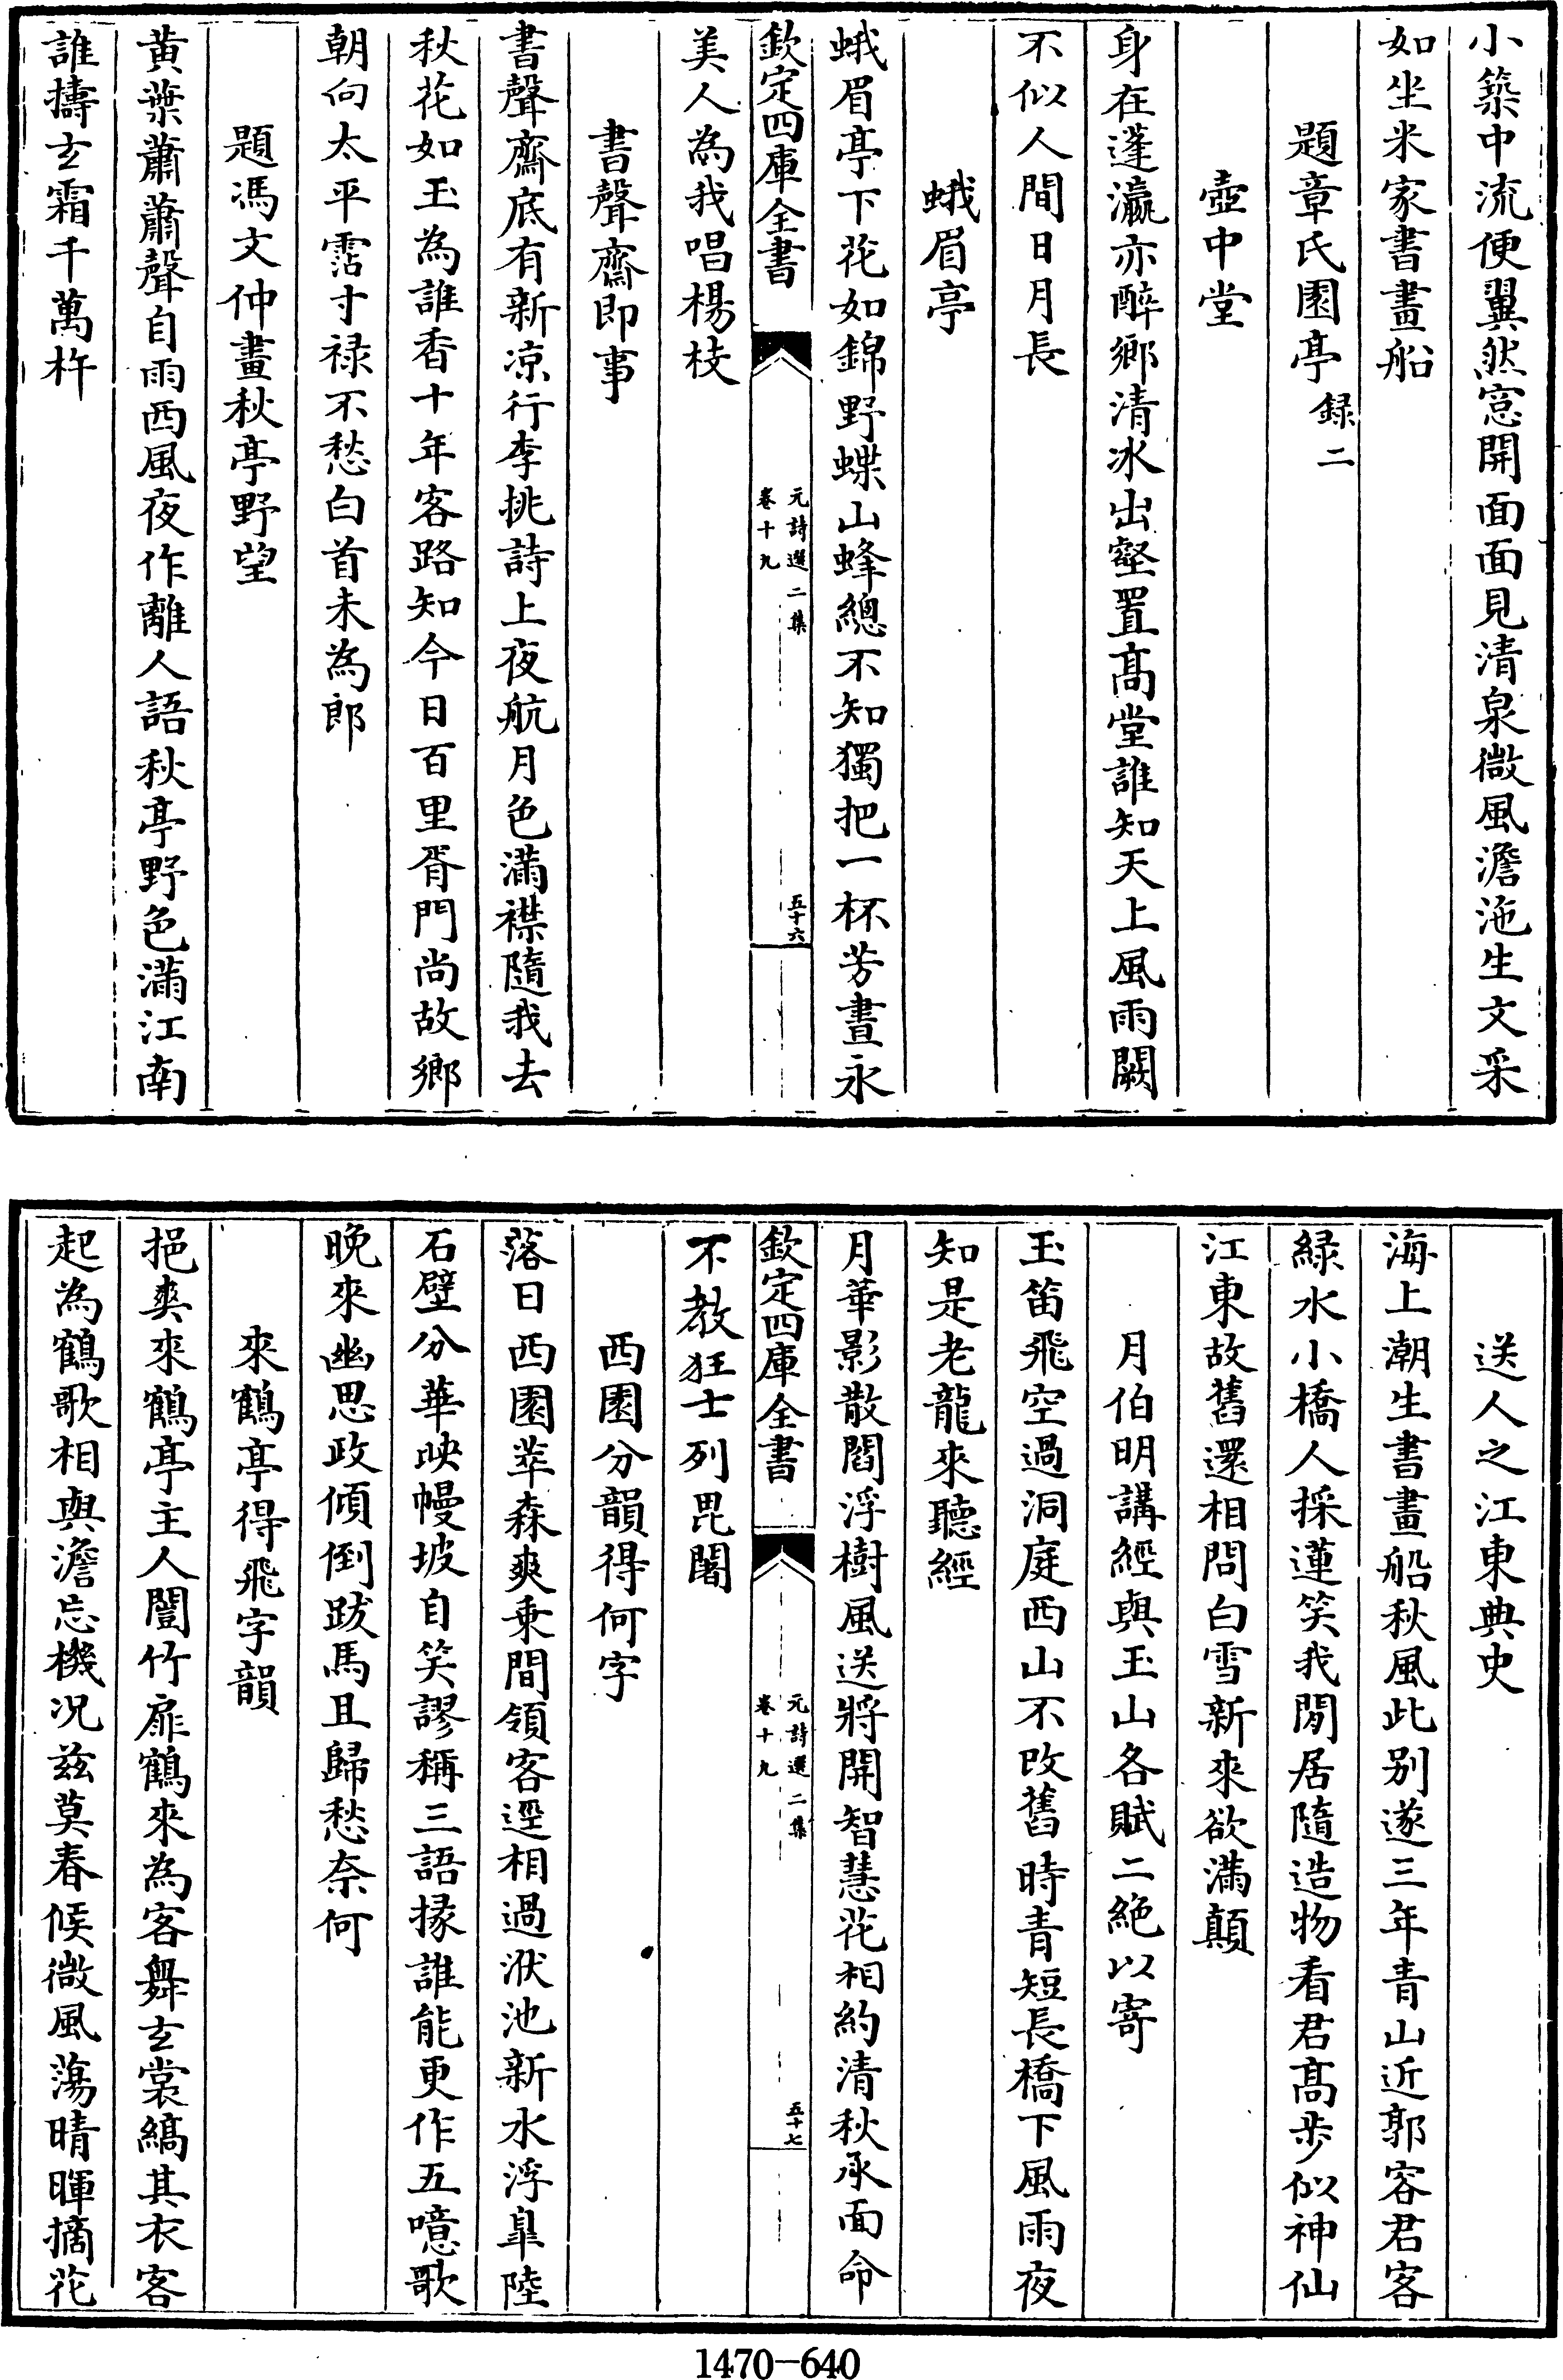 小築中流便翼然窓開面面見清泉微風澹沲生文采
如坐米家書畫船
題章氏園亭錄二
壺中堂
身在蓬瀛亦醉鄉清冰出壑置髙堂誰知天上風雨闕
不似人間日月長
蛾眉亭
蛾眉亭下花如錦野蝶山蜂總不知獨把一杯芳晝永
欽定四庫全書
元詩選二集
卷十九
五十六
美人為我唱楊枝
書聲齋即事
書聲齋底有新凉行李挑詩上夜航月色滿襟隨我去
秋花如玉為誰香十年客路知今日百里胥門尚故鄉
朝向太平霑寸禄不愁白首未為郎
題馮文仲畫秋亭野望
黄葉蕭蕭聲自雨西風夜作離人語秋亭野色滿江南
誰擣玄霜千萬杵
送人之江東典史
海上潮生書畫船秋風此别遂三年青山近郭容君客
緑水小橋人採蓮笑我閒居隨造物看君髙步似神仙
江東故舊還相問白雪新來欲滿顛
月伯明講經與玉山各賦二絶以寄
玉笛飛空過洞庭西山不改舊時青短長橋下風雨夜
知是老龍來聽經
月華影散閻浮樹風送將開智慧花相約清秋承面命
欽定四庫全書
元詩選二集
卷十九
五十七
不教狂士列毘闍
西園分韻得何字
落日西園萃森爽乗間領客逕相過洑池新水浮臯陸
石壁分華映幔坡自笑謬稱三語掾誰能更作五噫歌
晚來幽思政傾倒跋馬且歸愁奈何
來鶴亭得飛字韻
挹爽來鶴亭主人闓竹扉鶴來為客舞玄裳縞其衣客
起為鶴歌相與澹忘機况兹莫春候微風蕩晴暉摘花
1470-640